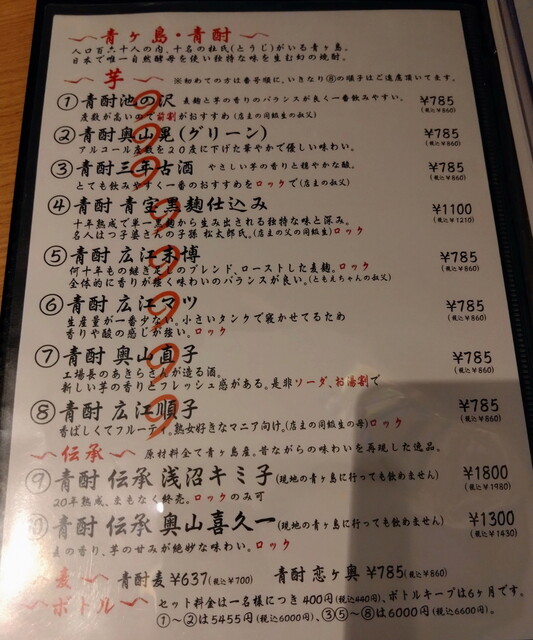 ～青ヶ島・青酎～
人口百六十人の内、十名の杜氏(とうじ)がいる青ヶ島。
日本で唯一自然酵母を使い独特な味を生む幻の焼酎。
～芋～ ※初めての方は番号順に、いきなり⑧の順子はご遠慮頂いてます。
①青酎池の沢 麦麹と芋の香りのバランスが良く一番飲みやすい。 ¥785
度数が高いので前割がおすすめ(店主の同級生の叔父) (税込¥860)
②青酎奥山晃(グリーン) ¥785
アルコール度数を20度に下げた華やかで優しい味わい。 (税込¥860)
③青酎三年古酒 やさしい芋の香りと穏やかな酸。 ¥785
とても飲みやすく一番のおすすめをロックで(店主の叔父) (税込¥860)
④青酎 青宝黒麹仕込み ¥1100
十年熟成で単一麹から生み出される独特な味と深み。 (税込¥1210)
名人はつ子婆さんの子孫 松太郎氏。(店主の父の同級生)ロック
⑤青酎 広江末博 ¥785
何十年もの継ぎ足しのブレンド、ローストした麦麹。ロック (税込¥860)
全体的に香りが強く味わいのバランスが良い。(ともえちゃんの叔父)
⑥青酎 広江マツ ¥785
生産量が一番少ない。小さいタンクで寝かせてるため (税込¥860)
香りや酸の感じが強い。ロック
⑦青酎 奥山直子 ¥785
工場長のあきらさんが造る酒。 (税込¥860)
新しい芋の香りとフレッシュ感がある。是非ソーダ、お湯割で
⑧青酎 広江順子 ¥785
香ばしくてフルーティ。熟女好きなマニア向け。(店主の同級生の母)ロック (税込¥860)
～伝承～ 原材料全て青ヶ島産。昔ながらの味わいを再現した逸品。
⑨青酎 伝承 浅沼キミ子(現地の青ヶ島に行っても飲めません) ¥1800
20年熟成、まもなく終売。ロックのみ可 (税込¥1980)
⑩青酎 伝承 奥山喜久一(現地の青ヶ島に行っても飲めません) ¥1300
麦の香り、芋の甘みが絶妙な味わい。ロック (税込¥1430)
～麦～ 青酎麦¥637(税込¥700) 青酎 恋ヶ奥 ¥785(税込¥860)
～ボトル～ セット料金は一名様につき400円(税込440円)、ボトルキープは6ヶ月です。
①～②は5455円(税込6000円)、③⑤～⑧は6000円(税込6600円)。